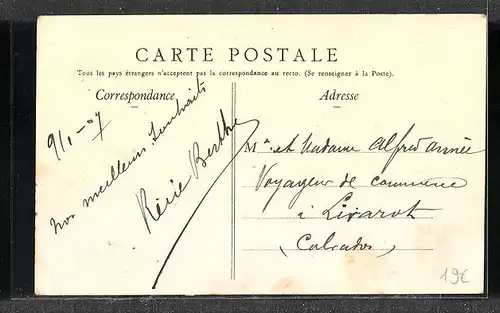 CARTE POSTALE
Tous les pays étrangers n'acceptent pas la correspondance au recto. (Se renseigner à la Poste).
Correspondance
Adresse
9/1-07
nos meilleurs Souhaits
Berthe
Mr et Madame Alfred année
Voyageur de commerce
à Livarot
(Calvados)
19€